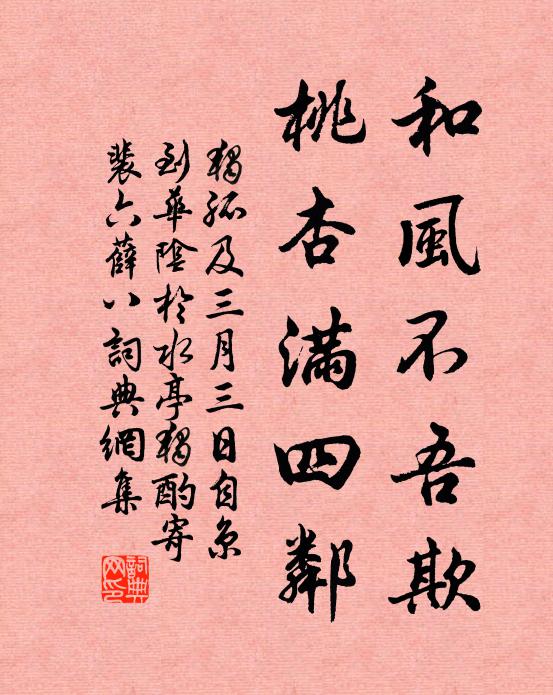 和風不吾欺
桃杏滿四鄰
獨孤及三月三日自京
到華陰於水亭獨酌寄
裴六薛八詞典網集
詞典
網印